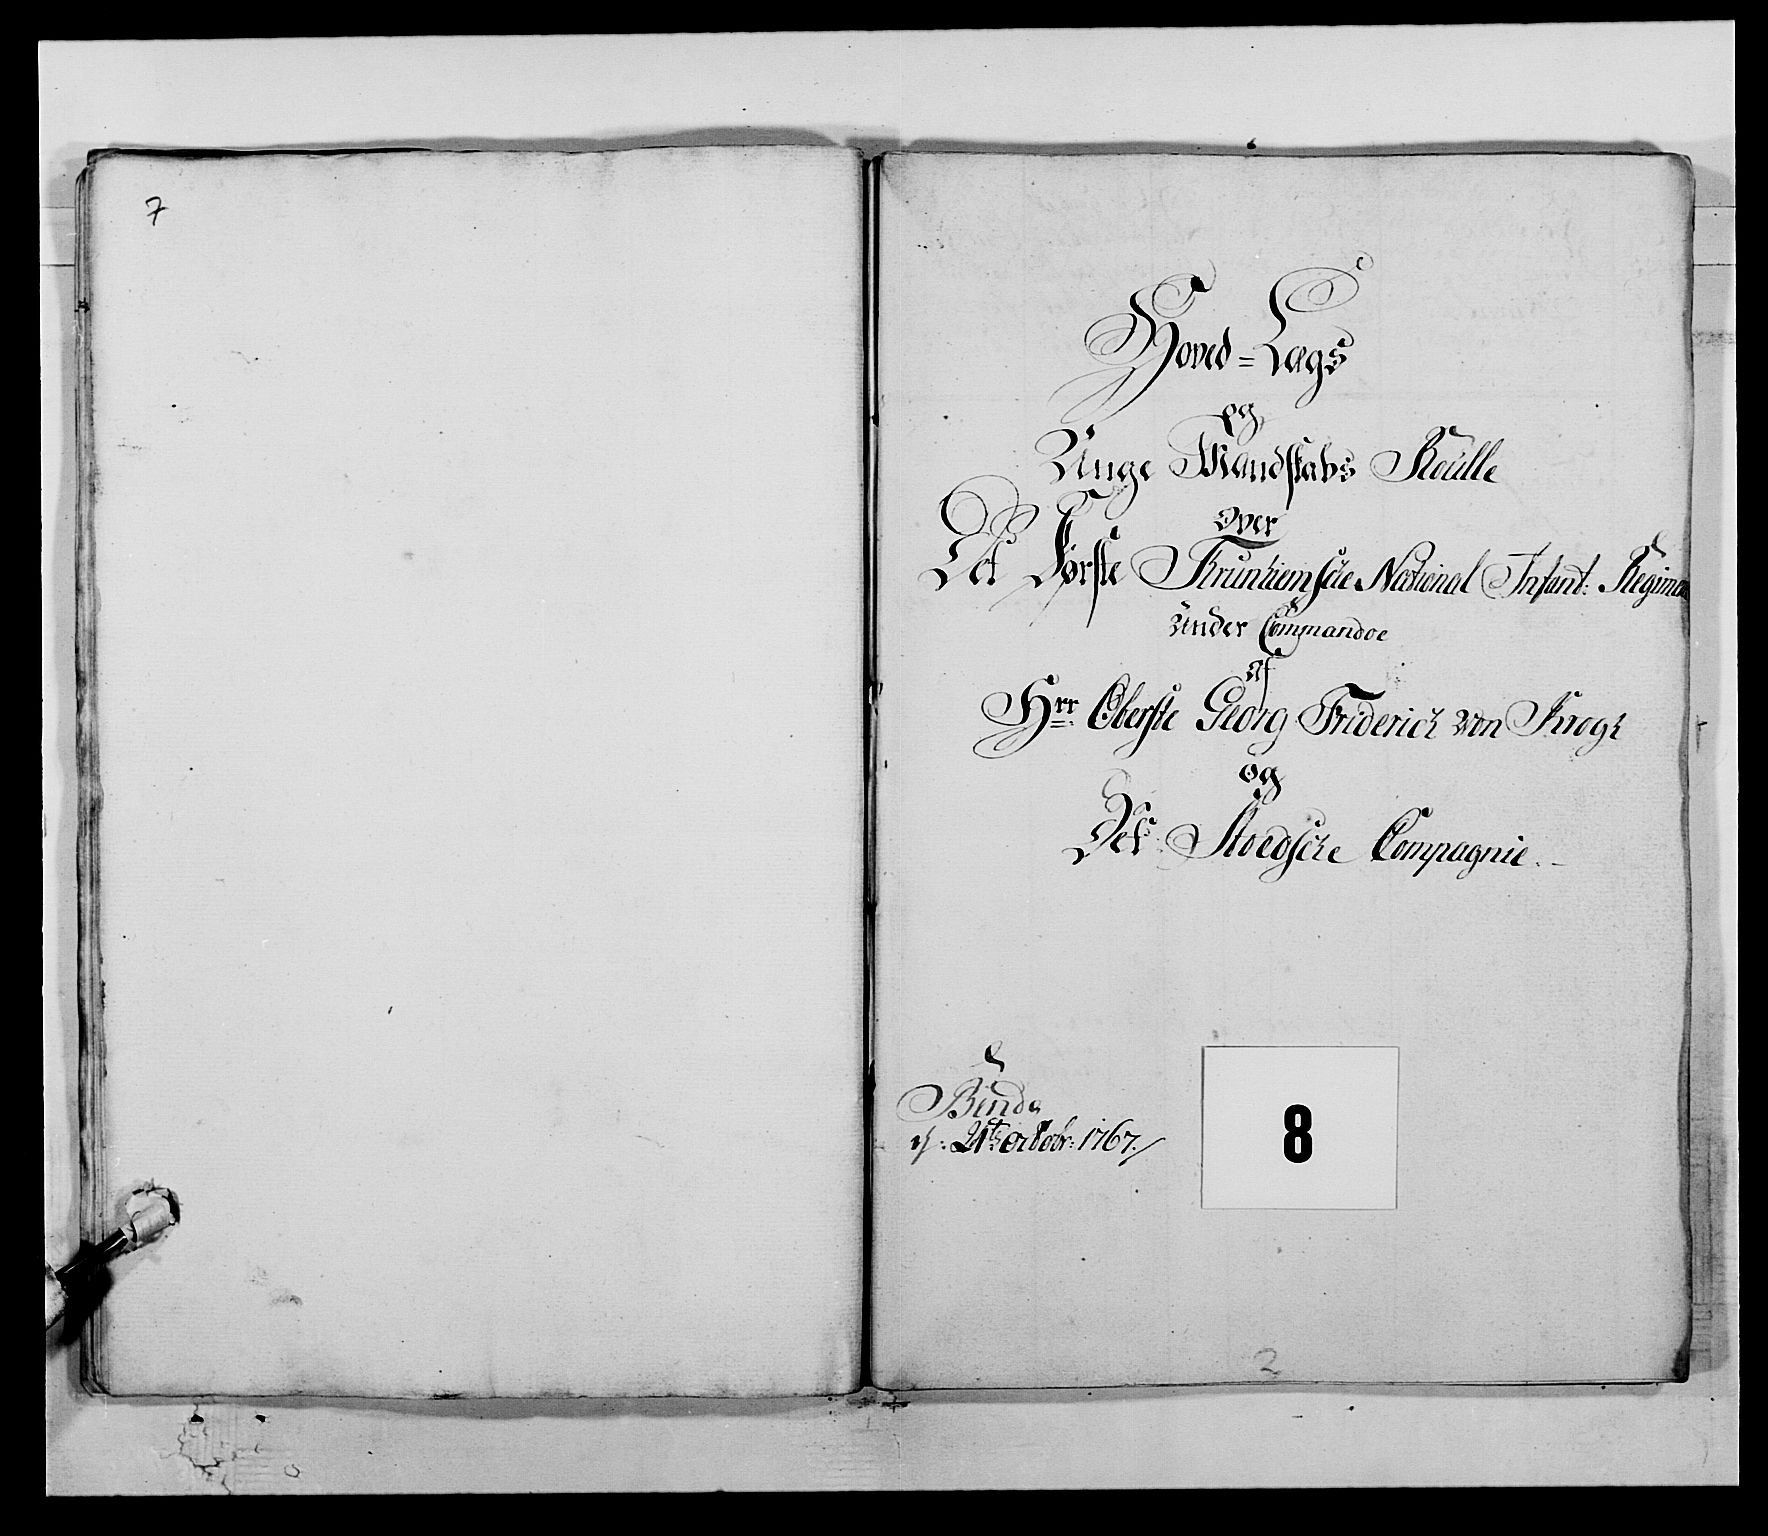 7
Hoved=Lags
og
Unge Mandskabs Roulle
Over
Det Første Trunhiemsche National Infant: Regimen
Under Commandoe
Af
Hrr: Oberste Georg Friderich von Krogh
og
Det Stoedsche Compagnie.
Binde
d: 21ts Octobr: 1767.
8
2